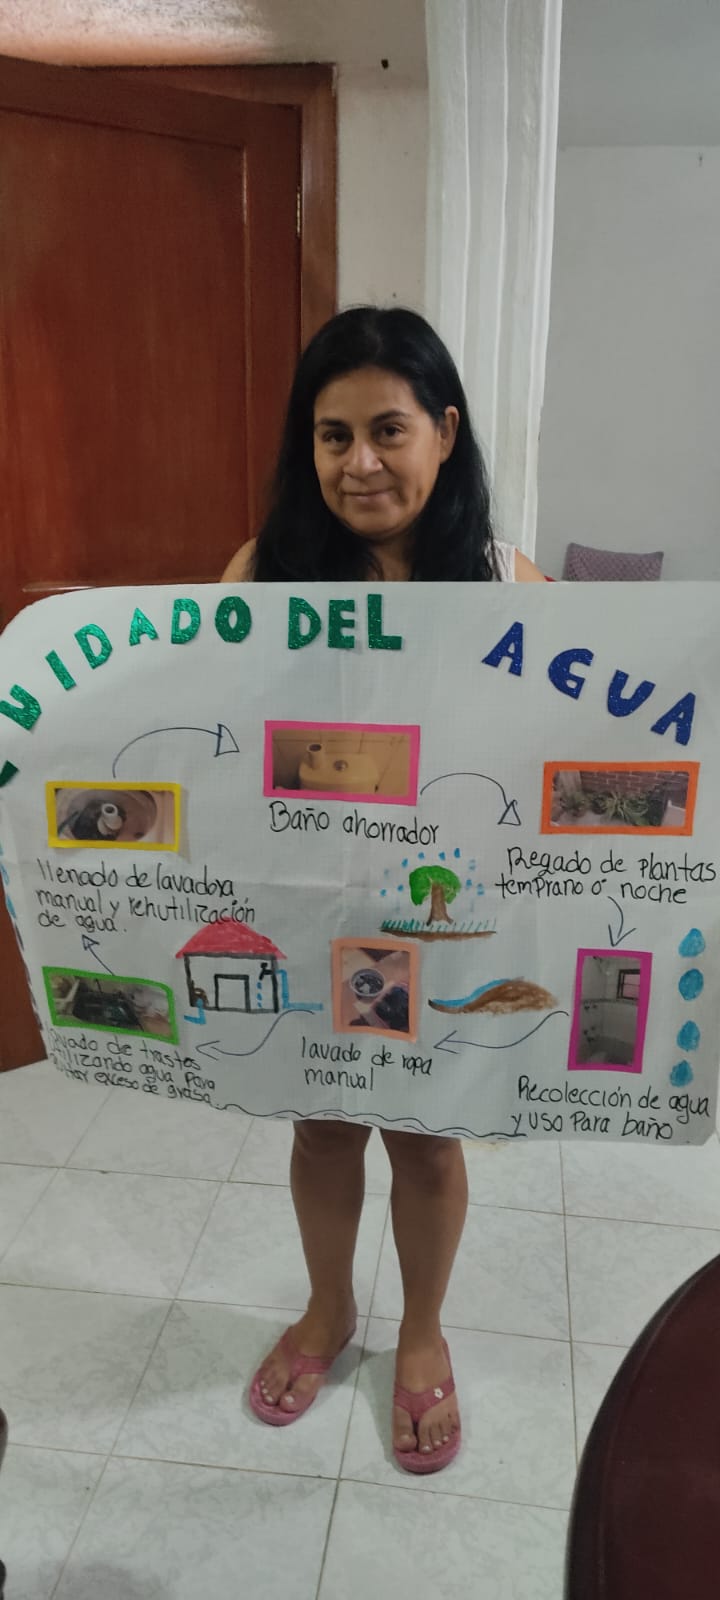 CUIDADO DEL AGUA
Baño ahorrador
Regado de plantas
temprano o noche
llenado de lavadora
manual y rehutilización
de agua.
lavado de ropa
manual
Recolección de agua
y uso Para baño
lavado de trastes
utilizando agua para
quitar exceso de grasa.